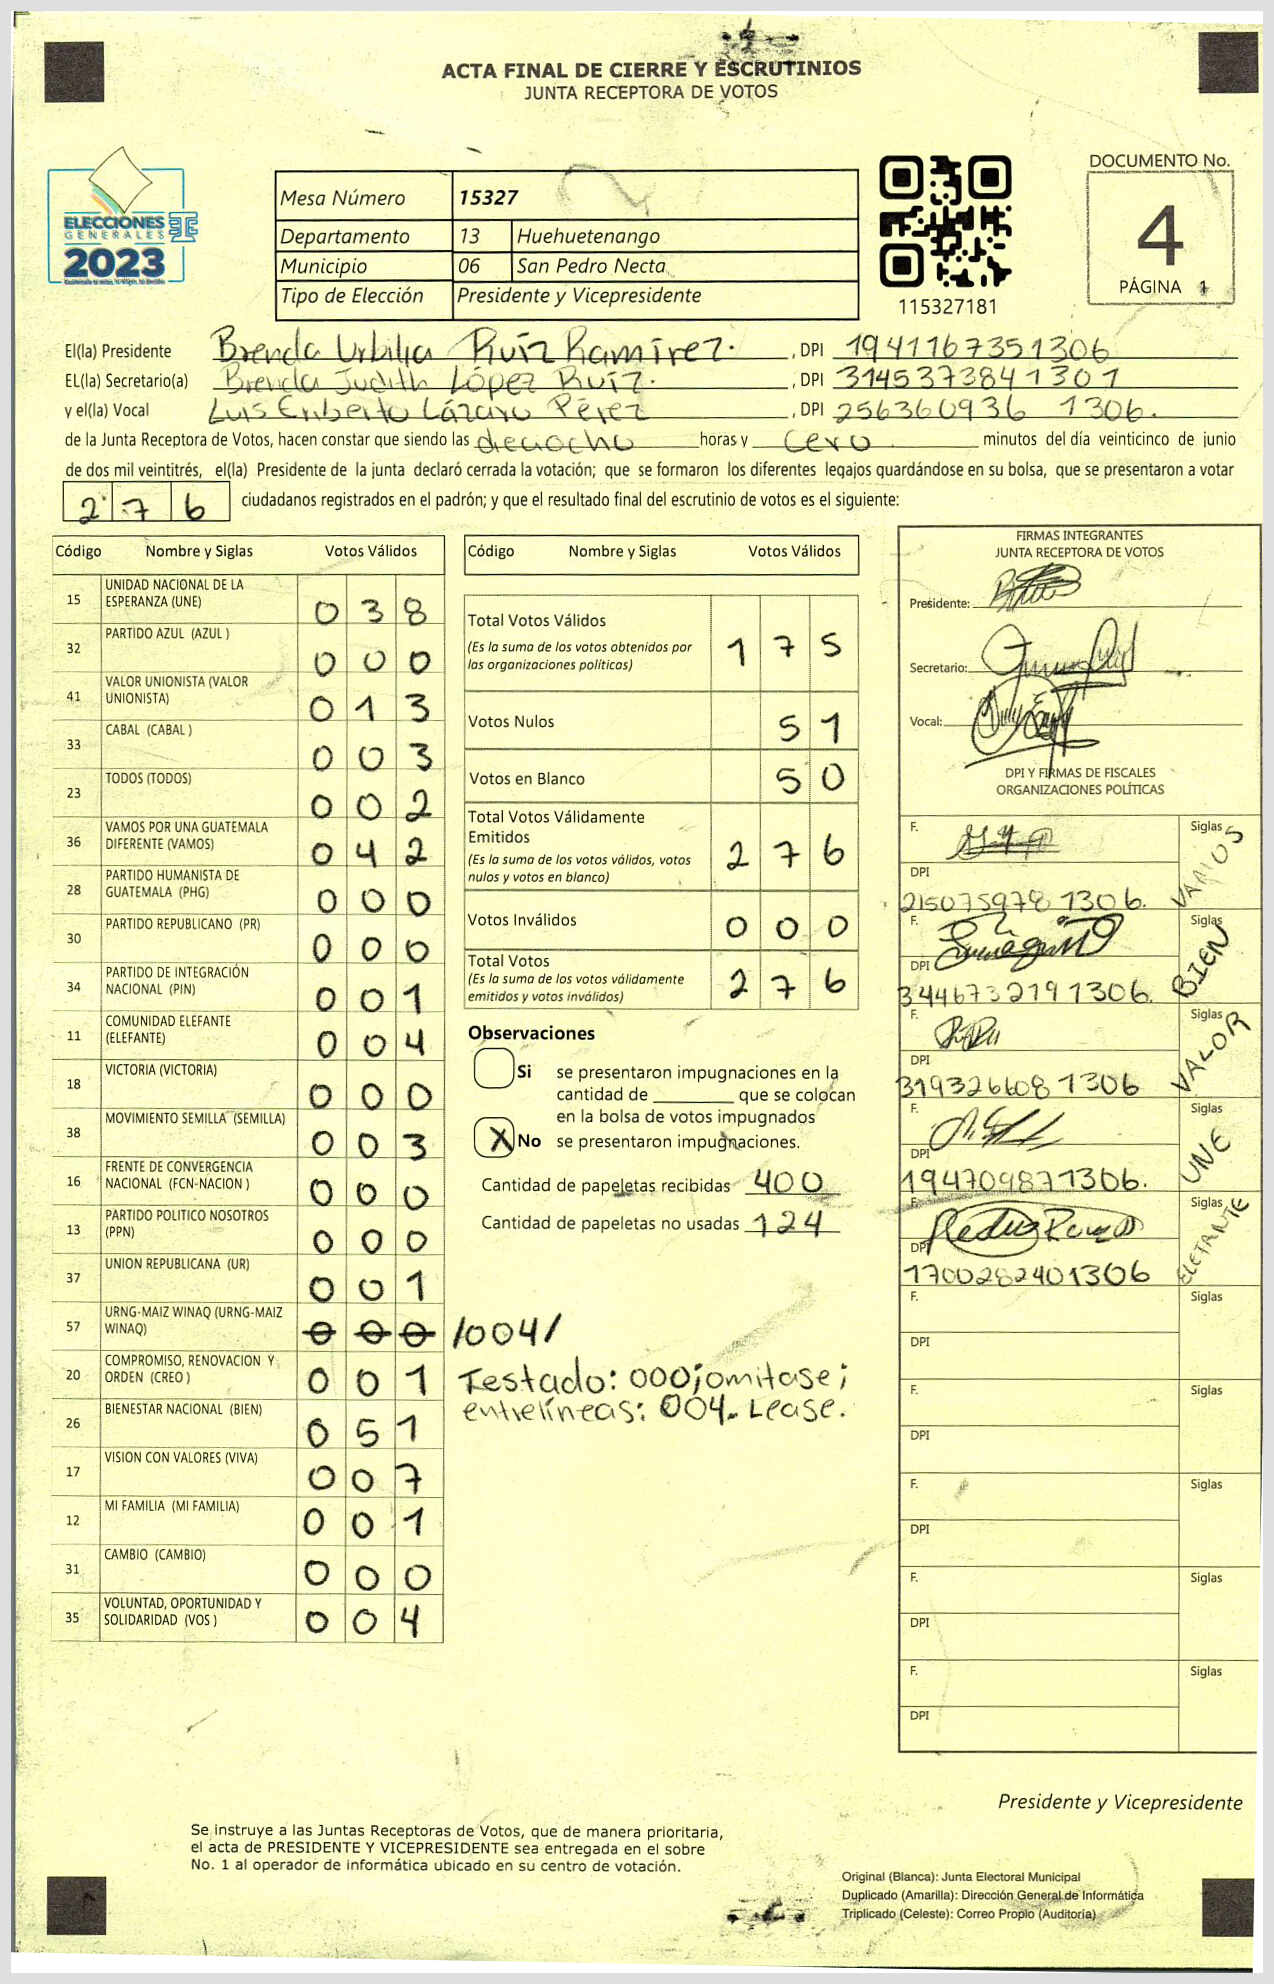 ACTA FINAL DE CIERRE Y ESCRUTINIOS
JUNTA RECEPTORA DE VOTOS
ELECCIONES
GENERALES
2023
Mesa Número 15327
Departamento 13 Huehuetenango
Municipio 06 San Pedro Necta
Tipo de Elección Presidente y Vicepresidente
115327181
DOCUMENTO No.
4
PÁGINA 1
El(la) Presidente Brenda Urbilia Ruíz Ramírez. , DPI 1941167351306
EL(la) Secretario(a) Brenda Judith López Ruíz. , DPI 3145373841301
y el(la) Vocal Luis Eriberto Lázaro Pérez , DPI 256360936 1306.
de la Junta Receptora de Votos, hacen constar que siendo las dieciocho horas y cero minutos del día veinticinco de junio
de dos mil veintitrés, el(la) Presidente de la junta declaró cerrada la votación; que se formaron los diferentes legajos guardándose en su bolsa, que se presentaron a votar
276 ciudadanos registrados en el padrón; y que el resultado final del escrutinio de votos es el siguiente:
Código Nombre y Siglas Votos Válidos
15 UNIDAD NACIONAL DE LA ESPERANZA (UNE) 038
32 PARTIDO AZUL (AZUL ) 000
41 VALOR UNIONISTA (VALOR UNIONISTA) 013
33 CABAL (CABAL ) 003
23 TODOS (TODOS) 002
36 VAMOS POR UNA GUATEMALA DIFERENTE (VAMOS) 042
28 PARTIDO HUMANISTA DE GUATEMALA (PHG) 000
30 PARTIDO REPUBLICANO (PR) 000
34 PARTIDO DE INTEGRACIÓN NACIONAL (PIN) 001
11 COMUNIDAD ELEFANTE (ELEFANTE) 004
18 VICTORIA (VICTORIA) 000
38 MOVIMIENTO SEMILLA (SEMILLA) 003
16 FRENTE DE CONVERGENCIA NACIONAL (FCN-NACION ) 000
13 PARTIDO POLITICO NOSOTROS (PPN) 000
37 UNION REPUBLICANA (UR) 001
57 URNG-MAIZ WINAQ (URNG-MAIZ WINAQ) 000 /004/
20 COMPROMISO, RENOVACION Y ORDEN (CREO ) 001
26 BIENESTAR NACIONAL (BIEN) 051
17 VISION CON VALORES (VIVA) 007
12 MI FAMILIA (MI FAMILIA) 001
31 CAMBIO (CAMBIO) 000
35 VOLUNTAD, OPORTUNIDAD Y SOLIDARIDAD (VOS ) 004
Código Nombre y Siglas Votos Válidos
Total Votos Válidos 175
(Es la suma de los votos obtenidos por
las organizaciones políticas)
Votos Nulos 51
Votos en Blanco 50
Total Votos Válidamente
Emitidos 276
(Es la suma de los votos válidos, votos
nulos y votos en blanco)
Votos Inválidos 000
Total Votos 276
(Es la suma de los votos válidamente
emitidos y votos inválidos)
Observaciones
Si se presentaron impugnaciones en la
cantidad de ________ que se colocan
en la bolsa de votos impugnados
X No se presentaron impugnaciones.
Cantidad de papeletas recibidas 400
Cantidad de papeletas no usadas 124
Testado: 000; omitase;
entrelíneas: 004. Lease.
FIRMAS INTEGRANTES
JUNTA RECEPTORA DE VOTOS
Presidente:
Secretario:
Vocal:
DPI Y FIRMAS DE FISCALES
ORGANIZACIONES POLÍTICAS
F. Siglas
DPI
215075978 1306.
F. Siglas BIEN
DPI
344673219 1306.
F. Siglas VALOR
DPI
319326608 1306
F. Siglas UNE
DPI
194709871306.
F. Siglas
DPI
1700282401306
F. Siglas
DPI
F. Siglas
DPI
F. Siglas
DPI
F. Siglas
DPI
F. Siglas
DPI
Presidente y Vicepresidente
Se instruye a las Juntas Receptoras de Votos, que de manera prioritaria,
el acta de PRESIDENTE Y VICEPRESIDENTE sea entregada en el sobre
No. 1 al operador de informática ubicado en su centro de votación.
Original (Blanca): Junta Electoral Municipal
Duplicado (Amarilla): Dirección General de Informática
Triplicado (Celeste): Correo Propio (Auditoría)